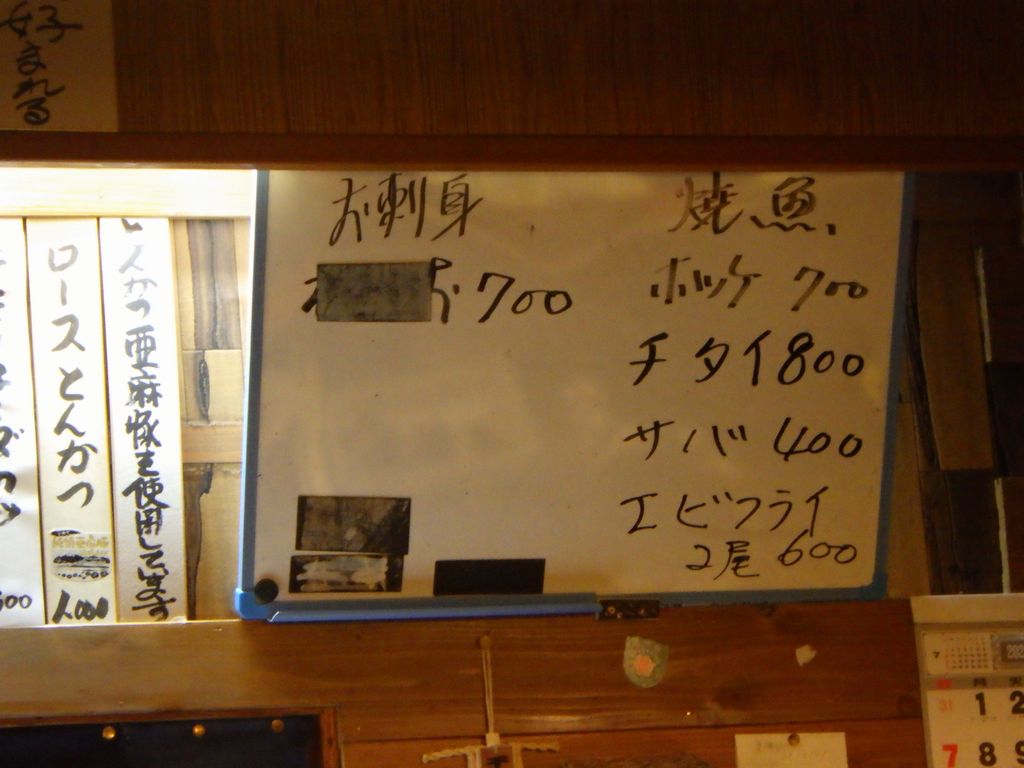 好まれる
お刺身
700
焼魚
ホッケ 700
チダイ 800
サバ 400
エビフライ
2尾 600
ロースとんかつ
1,000
とんかつ亜麻豚を使用しています
7
月 火
31 1 2
7 8 9